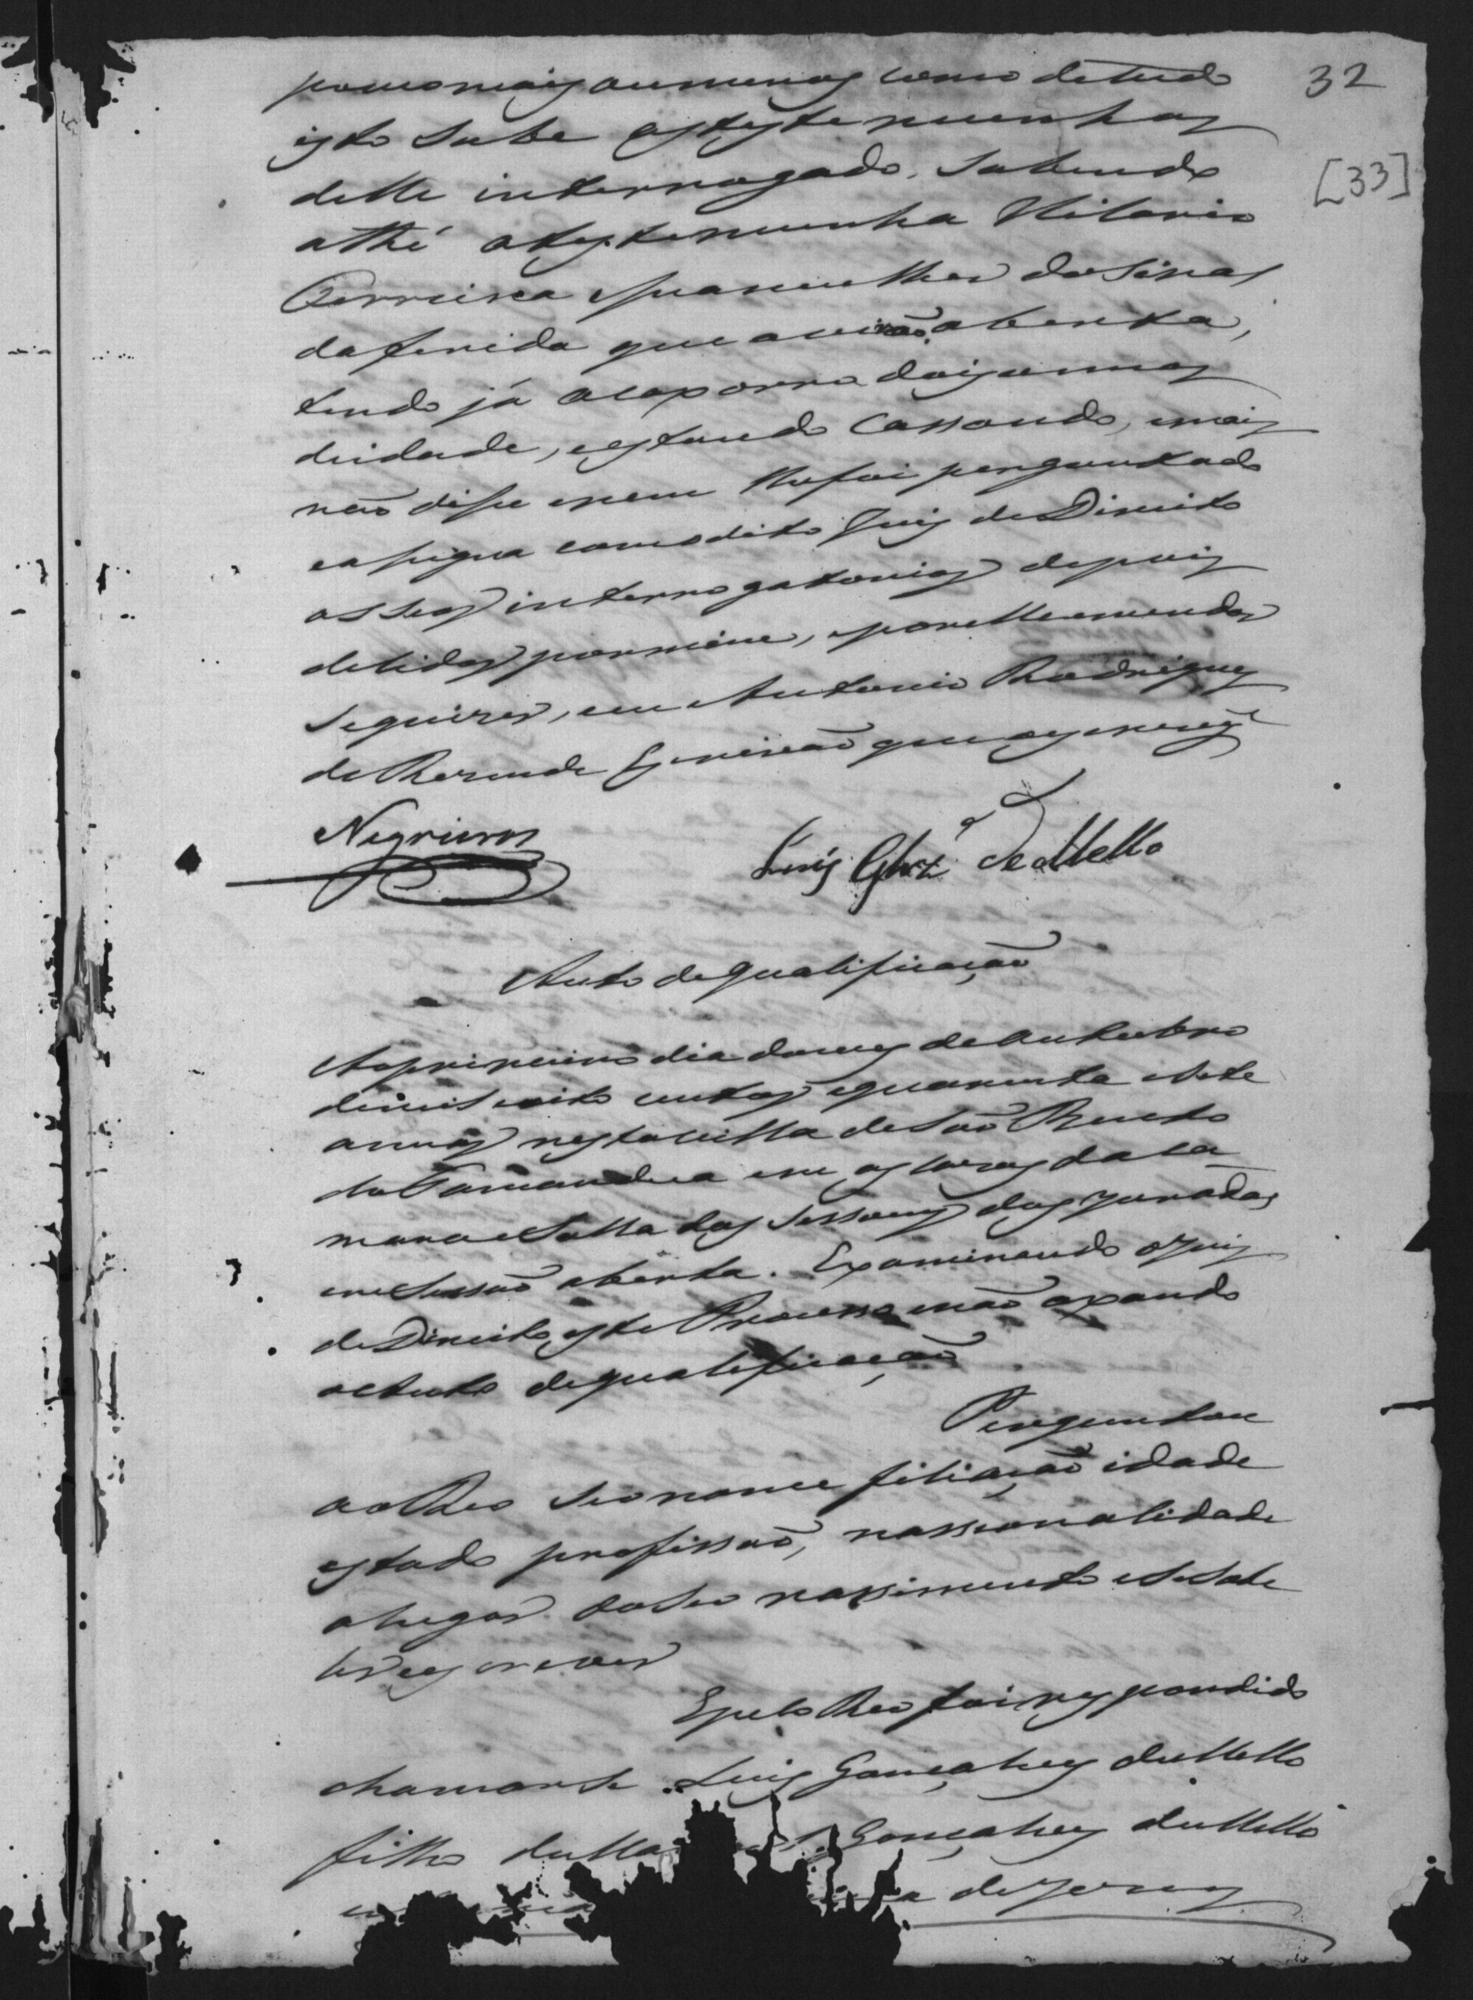 32
[33]
pouco mais ou menos como de tudo
isto sabe as testemunhas
delle interrogado, sabendo
athé a testemunha Hilario
Ferreira e sua mulher dos sinas
da ferida que ainda não aberta,
tendo já a caxorra dois annos
de idade, estando cassando, e mais
não disse e nem lhe foi perguntado
e assigna com o dito Juis de Direito
os seos interrogatorios depois
de lidos por mim, e por elle emendas
se quizer, eu Antonio Rodrigues
de Resende Escrivão que o escrevy
Negrieros
Luis Glz de Mello
Auto de qualificação
Ao primeiro dia do mes de Outubro
de mil oito centos e quarenta e sete
annos nesta villa de São Bento
do Tamandua em as casas da ca
mara e Salla das Sessoens dos Jurados
em Sessão aberta. Examinando o Juis
de Direito este Processo e não axando
o Auto de qualificação
Perguntou
ao Reo seo nome filiação idade
estado profissão, nassionalidade
o lugar do seo nassimento e se sabe
ler e escrever
E pelo Reo foi respondido
chamar-se Luis Gonçalves de Mello
filho de Ma Gonçalves de Mello
de Jesus